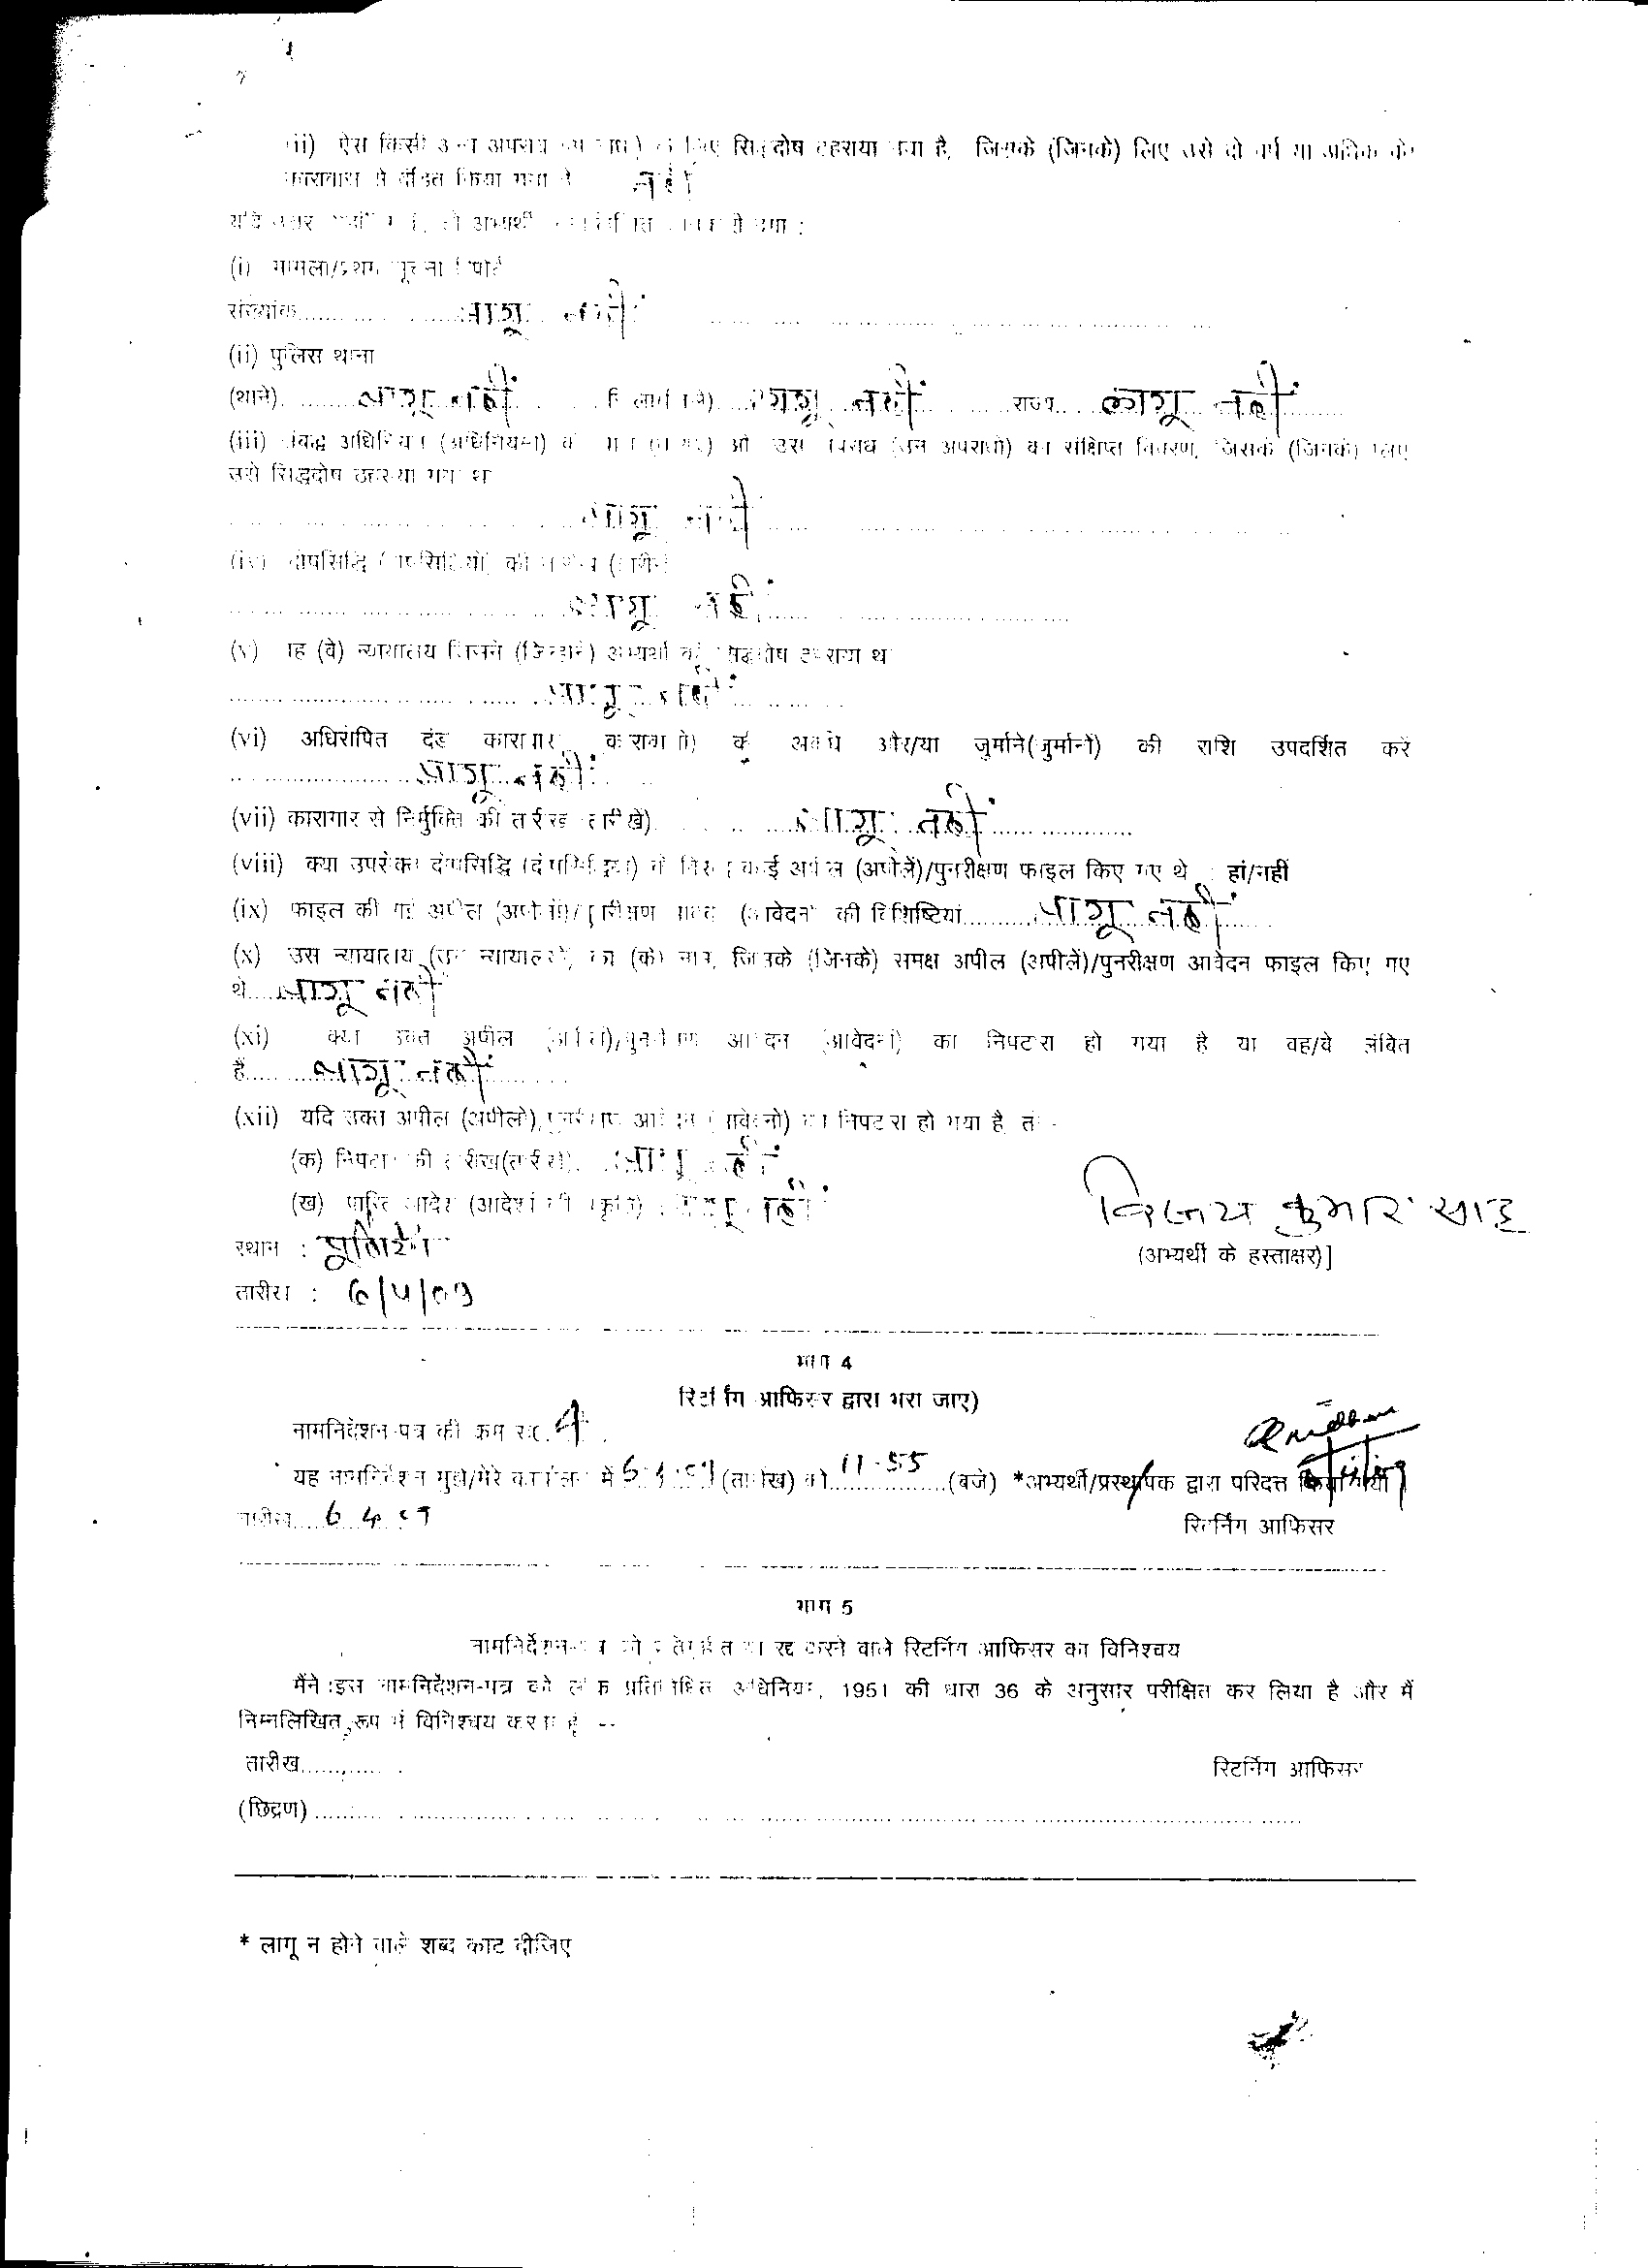 (ii) ऐसे किसी अन्य अपराध के लिए सिद्धदोष ठहराया गया है, जिसके (जिनके) लिए उसे दो वर्ष या अधिक के
कारावास से दंडित किया गया है नहीं
यदि उत्तर
(i) मामला/प्रथम सूचना रिपोर्ट
संख्यांक.......... लागू नहीं
(ii) पुलिस थाना
(थाने).......... लागू नहीं जिला लागू नहीं राज्य.... लागू नहीं
(iii) संबद्ध अधिनियम (अधिनियमों) की धारा का संक्षिप्त विवरण, जिसके (जिनके) लिए
उसे सिद्धदोष ठहराया गया था
लागू नहीं
(iv) दोषसिद्धि की तारीख
लागू नहीं
(v) वह (वे) न्यायालय जिसने (जिन्होंने) अभ्यर्थी को सिद्धदोष ठहराया था
लागू नहीं
(vi) अधिरोपित दंड कारागार की अवधि और/या जुर्माने(जुर्मानों) की राशि उपदर्शित करें
लागू नहीं
(vii) कारागार से निर्मुक्ति की तारीख (तारीखें) लागू नहीं
(viii) क्या उपरोक्त दोषसिद्धि के विरुद्ध कोई अपील (अपीलें)/पुनरीक्षण फाइल किए गए थे : हां/नहीं
(ix) फाइल की गई अपील (अपीलों)/पुनरीक्षण आवेदन (आवेदनों) की विशिष्टियां.......... लागू नहीं
(x) उस न्यायालय (उन न्यायालयों) का (के) नाम, जिसके (जिनके) समक्ष अपील (अपीलें)/पुनरीक्षण आवेदन फाइल किए गए
थे..... लागू नहीं
(xi) क्या उक्त अपील (अपीलों)/पुनरीक्षण आवेदन (आवेदनों) का निपटारा हो गया है या वह/वे लंबित
हैं..... लागू नहीं
(xii) यदि उक्त अपील (अपीलों)/पुनरीक्षण आवेदन (आवेदनों) का निपटारा हो गया है, तो -
(क) निपटारे की तारीख(तारीखें) लागू नहीं
(ख) पारित आदेश (आदेशों) की प्रकृति : लागू नहीं
विजय कुमार साह
स्थान :
(अभ्यर्थी के हस्ताक्षर)]
तारीख : 6/4/09
भाग 4
रिटर्निंग आफिसर द्वारा भरा जाए)
नामनिर्देशन-पत्र की क्रम सं. 4
यह नामनिर्देशन मुझे/मेरे कार्यालय में 6.4.09 (तारीख) को 11.55 (बजे) *अभ्यर्थी/प्रस्थापक द्वारा परिदत्त किया गया
तारीख.... 6.4.09
रिटर्निंग आफिसर
भाग 5
नामनिर्देशन-पत्र को प्रतिगृहीत या रद्द करने वाले रिटर्निंग आफिसर का विनिश्चय
मैंने इस नामनिर्देशन-पत्र को लोक प्रतिनिधित्व अधिनियम, 1951 की धारा 36 के अनुसार परीक्षित कर लिया है और मैं
निम्नलिखित रूप में विनिश्चय करता हूं --
तारीख............
रिटर्निंग आफिसर
(छिद्रण) ..........
* लागू न होने वाले शब्द काट दीजिए